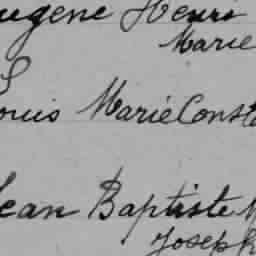 Eugène Henri
Marie
Louis Marie Const
Jean Baptiste M
Joseph